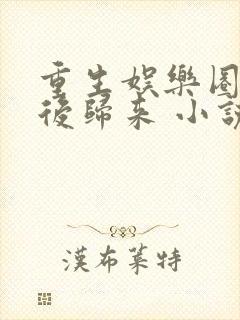 重生娛樂圈
後歸來 小說
漢布萊特